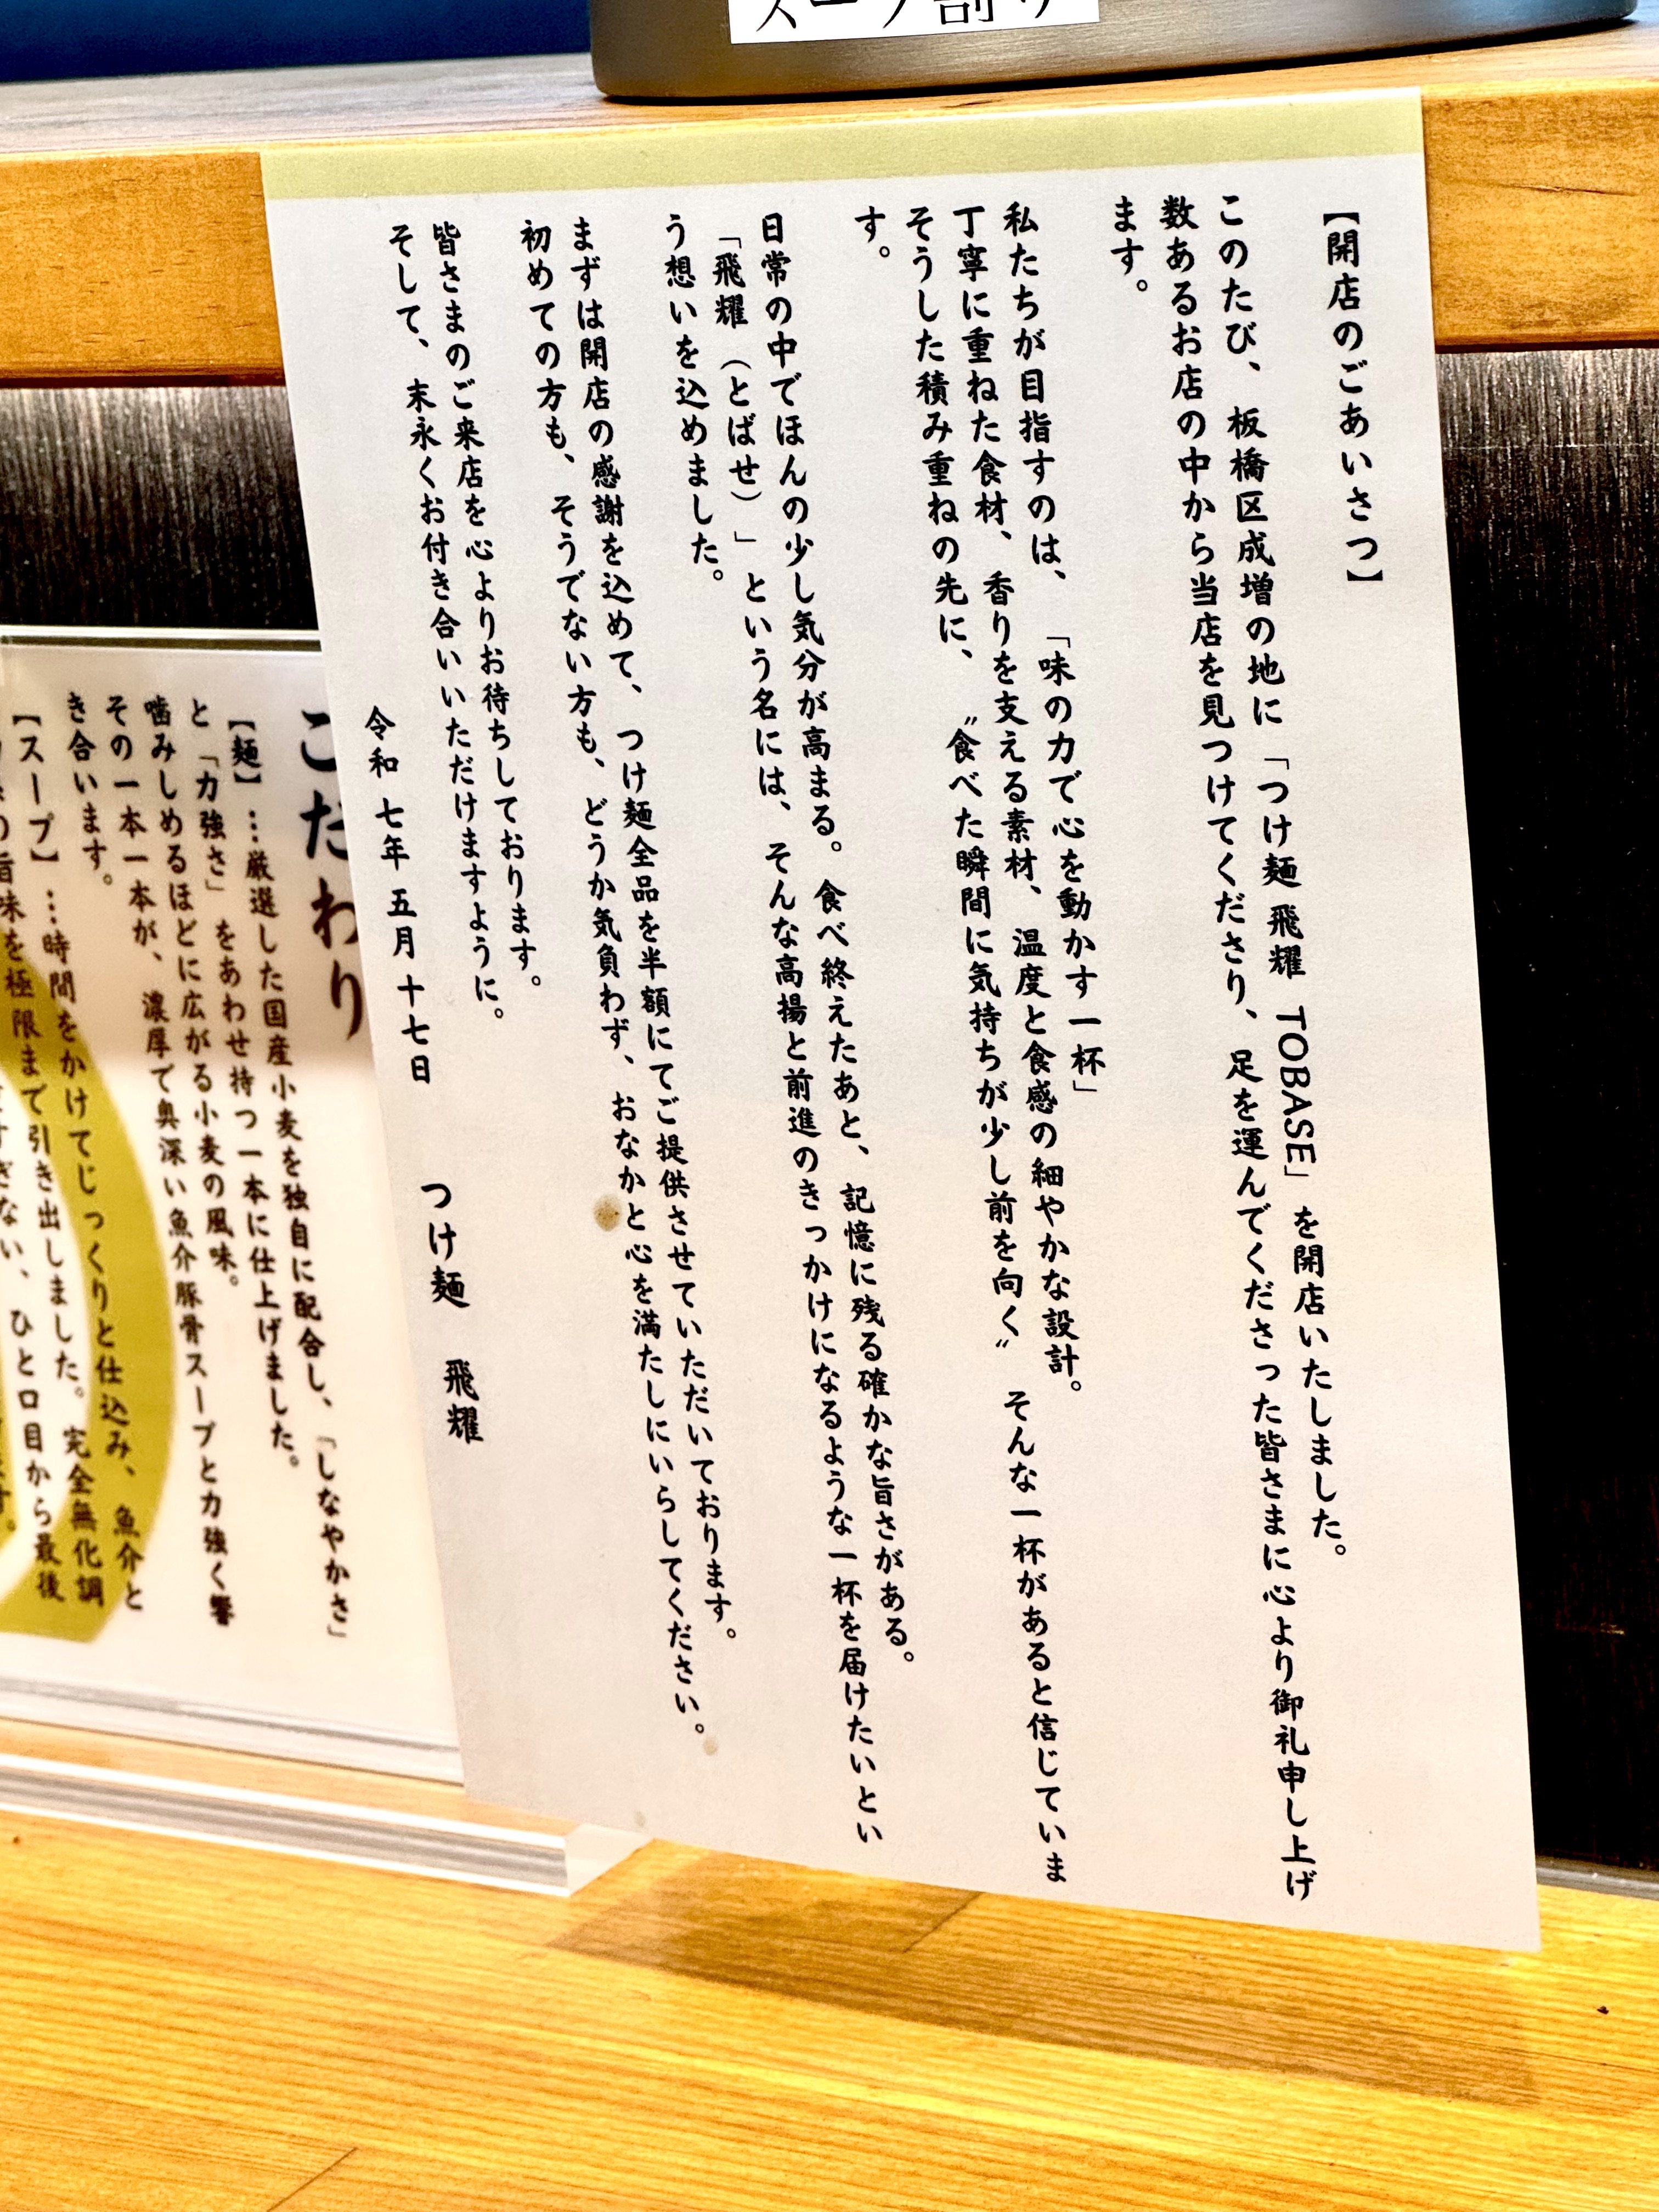 スープ割り
【開店のごあいさつ】
このたび、板橋区成増の地に「つけ麺 飛耀 TOBASE」を開店いたしました。
数あるお店の中から当店を見つけてくださり、足を運んでくださった皆さまに心より御礼申し上げ
ます。
私たちが目指すのは、「味の力で心を動かす一杯」
丁寧に重ねた食材、香りを支える素材、温度と食感の細やかな設計。
そうした積み重ねの先に、〝食べた瞬間に気持ちが少し前を向く〟そんな一杯があると信じていま
す。
日常の中でほんの少し気分が高まる。食べ終えたあと、記憶に残る確かな旨さがある。
「飛耀（とばせ）」という名には、そんな高揚と前進のきっかけになるような一杯を届けたいとい
う想いを込めました。
まずは開店の感謝を込めて、つけ麺全品を半額にてご提供させていただいております。
初めての方も、そうでない方も、どうか気負わず、おなかと心を満たしにいらしてください。
皆さまのご来店を心よりお待ちしております。
そして、末永くお付き合いいただけますように。
令和 七年 五月 十七日 つけ麺 飛耀
こだわり
【麺】…厳選した国産小麦を独自に配合し、「しなやかさ」
と「力強さ」をあわせ持つ一本に仕上げました。
噛みしめるほどに広がる小麦の風味。
その一本一本が、濃厚で奥深い魚介豚骨スープと力強く響
き合います。
【スープ】…時間をかけてじっくりと仕込み、魚介と
の旨味を極限まで引き出しました。完全無化調
すぎない、ひと口目から最後
ます。